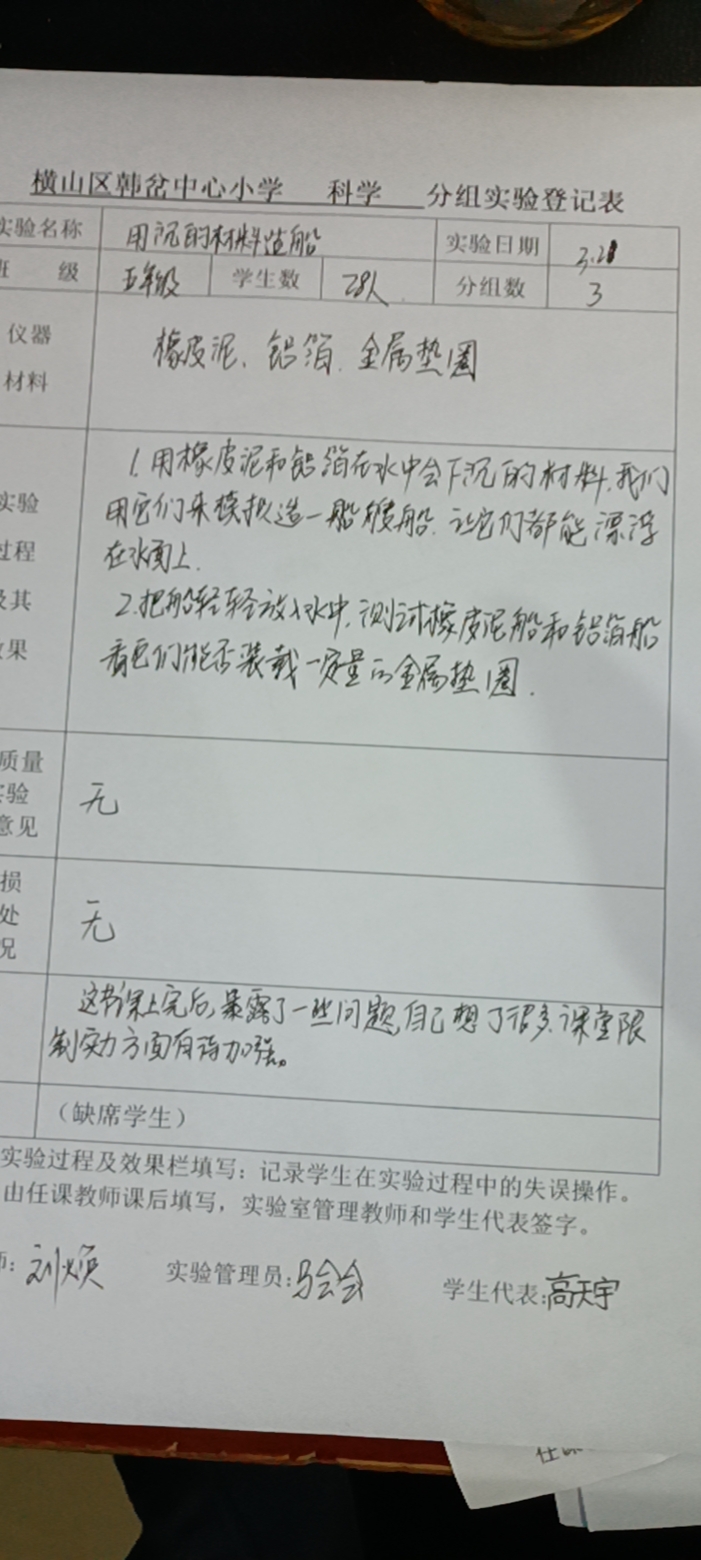 横山区韩岔中心小学 科学 分组实验登记表
实验名称 用沉的材料造船 实验日期 3.28
班 级 五年级 学生数 28人 分组数 3
仪器 橡皮泥、铝箔、金属垫圈
材料
1.用橡皮泥和铝箔在水中会下沉的材料,我们
实验 用它们来模拟造一艘船,让它们都能漂浮
过程 在水面上.
及其 2.把船轻轻放入水中,测试橡皮泥船和铝箔船
效果 看它们能否装载一定量的金属垫圈.
质量
实验 无
意见
损
处 无
况
这节课上完后,暴露了一些问题,自己想了很多,课堂限
制实力方面有待加强。
(缺席学生)
实验过程及效果栏填写:记录学生在实验过程中的失误操作。
由任课教师课后填写,实验室管理教师和学生代表签字。
师:刘焕 实验管理员:马会会 学生代表:高天宇